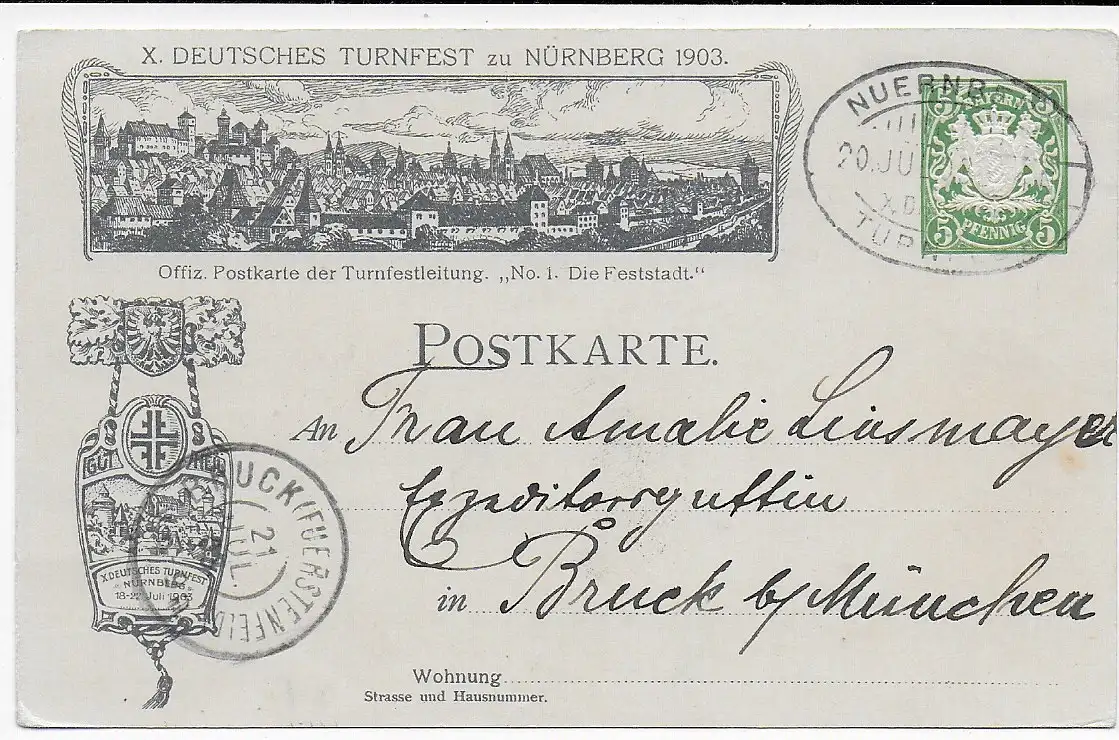 X. DEUTSCHES TURNFEST zu NÜRNBERG 1903.
Offiz. Postkarte der Turnfestleitung. „No. 1. Die Feststadt.“
NUERNB
20. JU
X. D
TURNF
BAYERN
5 5
PFENNIG
POSTKARTE.
An Frau Amalie Linsmayer
Expeditorsgattin
in Bruck b/ München
Wohnung
Strasse und Hausnummer.
GUT HEIL
X. DEUTSCHES TURNFEST
NÜRNBERG
18-22 Juli 1903
BRUCK (FUERSTENFELD
21
JUL